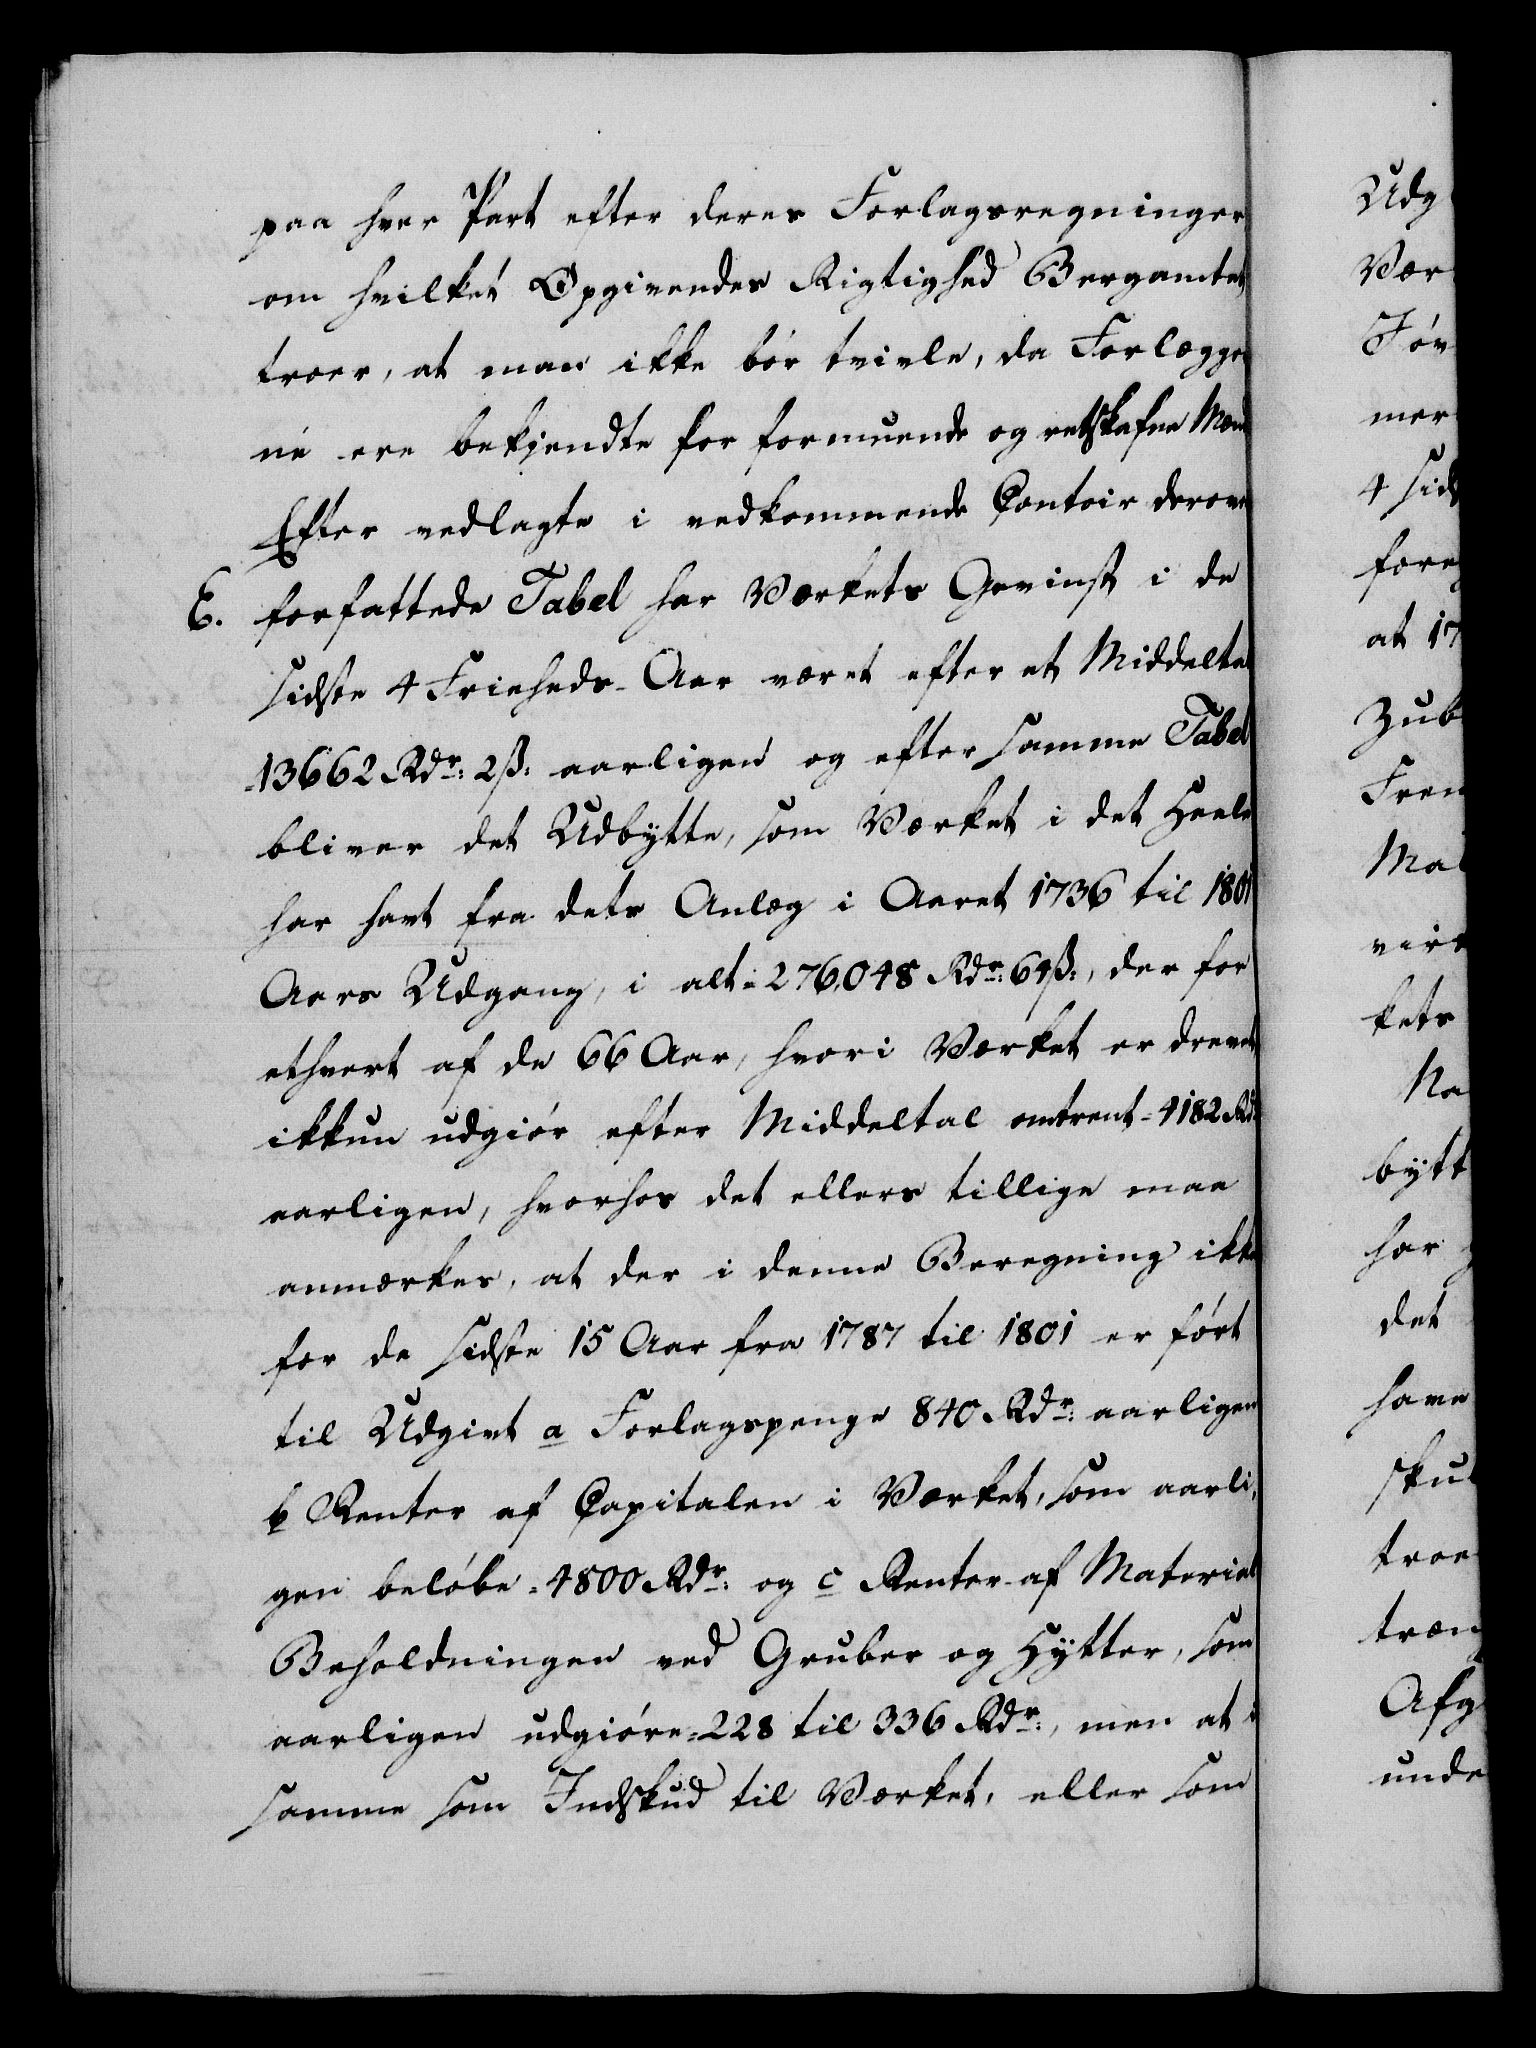 paa hver Part efter deres Forlagsregninger
om hvilket Opgivendes Rigtighed Bergamtet
troer, at man ikke bör tvivle, da Forlægger
ne ere bekjendte for formuende og retskafne Mænd
Efter vedlagte i vedkommende Contoir derover
E. forfattede Tabel har Værkets Gevinst i de
sidste 4 Friheds-Aar været efter et Middeltal
13662 Rdr: 2ß: aarligen og efter samme Tabel
bliver det Udbytte, som Værket i det Heele
har havt fra dets Anlæg i Aaret 1736 til 1801
Aars Udgang, i alt = 276,048 Rdr: 64ß:, der for
ethvert af de 66 Aar, hvori Værket er drevet
ikkun udgiör efter Middeltal omtrent = 4182 Rdr
aarligen, hvorhos det ellers tillige maa
anmærkes, at der i denne Beregning ikke
for de sidste 15 Aar fra 1787 til 1801 er fört
til Udgivt a Forlagspenge 840 Rdr: aarligen
b Renter af Capitalen i Værket, som aarli,
gen belöbe = 4800 Rdr: og c Renter af Material
Beholdningen ved Gruber og Hytter, som
aarligen udgiöre = 228 til 336 Rdr:, men at i
samme som Indskud til Værket, eller som
Udg
Vær
Töv
mer
4 sids
foreg
at 17
Zub
Frem
Mal
viræ
kets
Na
bytt
har
det
have
skul
troe
træn
Afg
unde